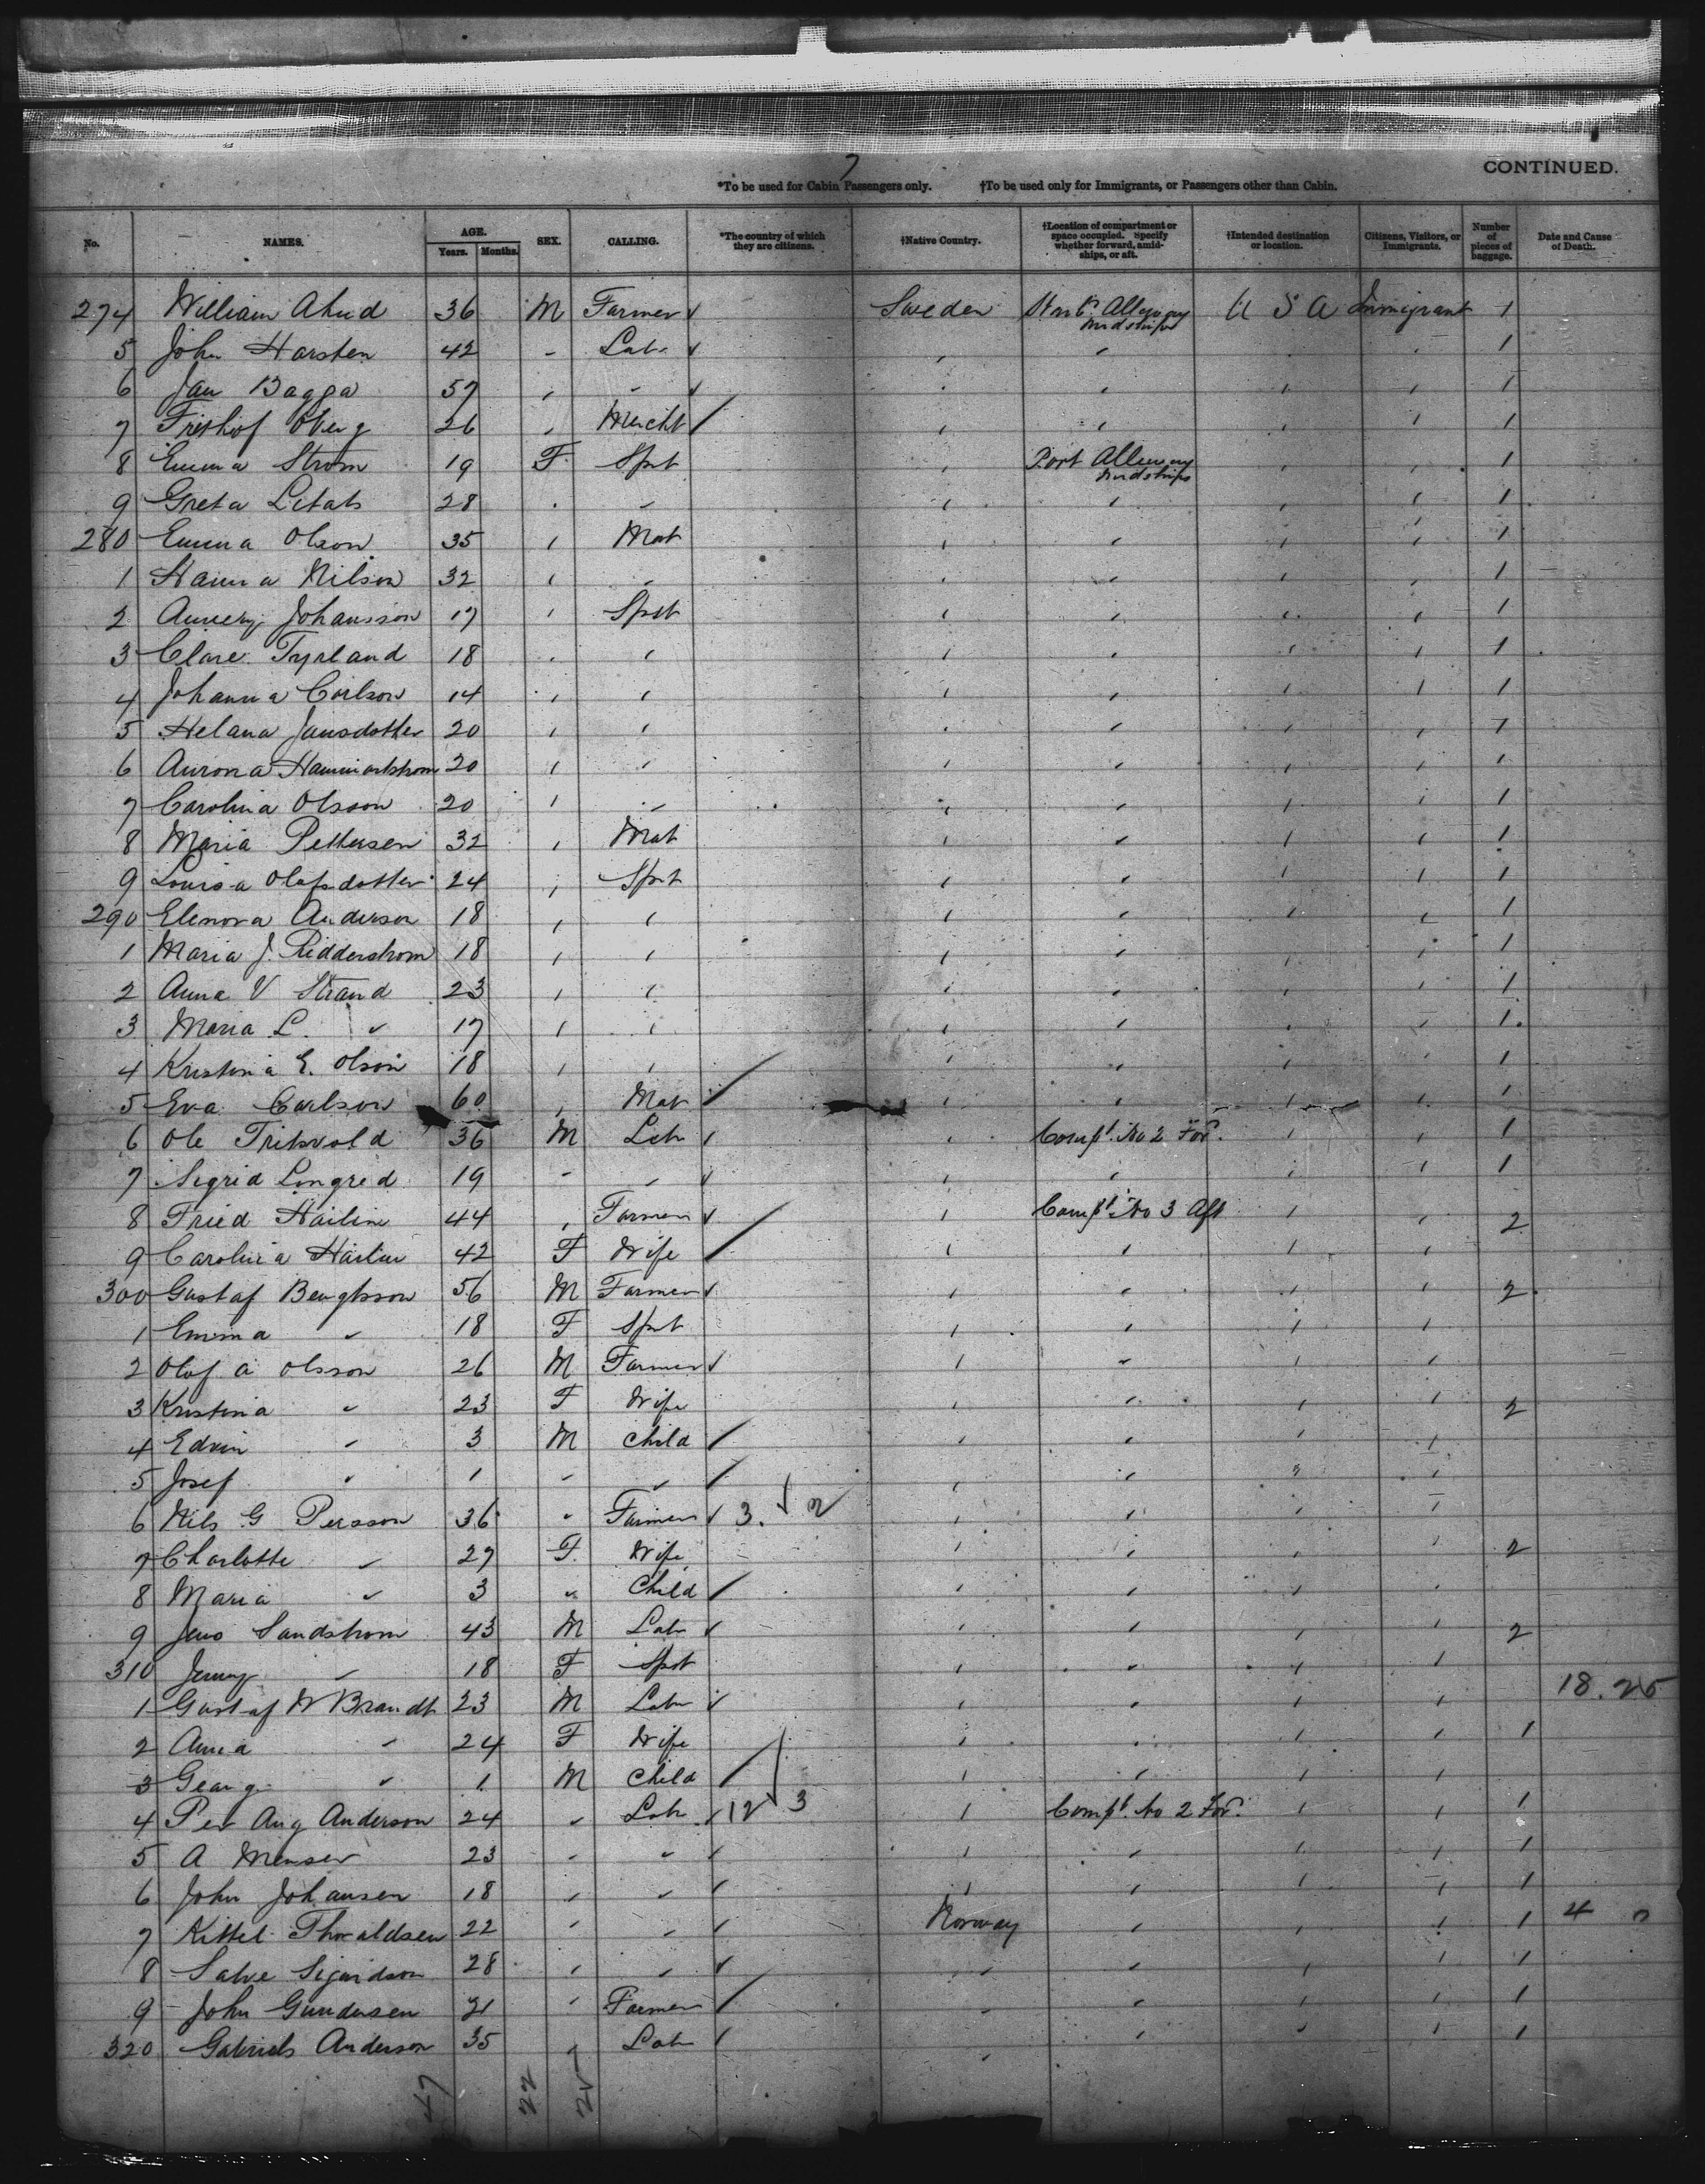 7
CONTINUED.
*To be used for Cabin Passengers only. †To be used only for Immigrants, or Passengers other than Cabin.
No. NAMES. AGE. Years. Months. SEX. CALLING. *The country of which they are citizens. †Native Country. †Location of compartment or space occupied. Specify whether forward, amidships, or aft. †Intended destination or location. Citizens, Visitors, or Immigrants. Number of pieces of baggage. Date and Cause of Death.
274 William 36 M Farmer Sweden Alleway Midships U S A Immigrant 1
5 John Harsten 42 " Labr " " " " 1
6 Jan Bagga 57 " " " " " " 1
7 Frithiof Oberg 26 " Mercht " " " " 1
8 Emma Strom 19 F Spst " Port Alleway Midships " " 1
9 Greta 28 " " " " " " 1
280 Emma Olson 35 " Mat " " " " 1
1 Hanna Nilson 32 " " " " " " 1
2 Johansson 17 " Spst " " " " 1
3 Clare Tyrland 18 " " " " " " 1
4 Johanna Carlson 14 " " " " " " 1
5 Helana Jansdotter 20 " " " " " " 1
6 Aurora Hammarstrom 20 " " " " " " 1
7 Carolina Olsson 20 " " " " " " 1
8 Maria Pettersen 32 " Mat " " " " 1
9 Louisa Olafsdotter 24 " Spst " " " " 1
290 Elenora Anderson 18 " " " " " " 1
1 Maria J. Ridderstrom 18 " " " " " " 1
2 Anna V Strand 23 " " " " " " 1
3 Maria L " 17 " " " " " " 1
4 Kristina E. Olson 18 " " " " " " 1
5 Eva Carlson 60 " Mat " " " " 1
6 Ole 36 M Labr " Compt. No 2 For. " " 1
7 Sigrid Longred 19 " " " " " " 1
8 Fried Hailin 44 " Farmer " Compt. No 3 Aft " " 2
9 Carolina Hailin 42 F Wife " " " "
300 Gustaf Bengtsson 56 M Farmer " " " " 2
1 Emma " 18 F Spst " " " "
2 Olof A Olsson 26 M Farmer " " " "
3 Kristina " 23 F Wife " " " " 2
4 Edvin " 3 M Child " " " "
5 Josef " 1 " " " " " "
6 Nils G Persson 36 " Farmer 3. 2 " " " "
7 Charlotte " 27 F. Wife " " " " 2
8 Maria " 3 " Child " " " "
9 Jens Sandstrom 43 M Labr " " " " 2
310 Jenny " 18 F Spst " " " "
1 Gustaf W Brandt 23 M Labr " " " " 18.25
2 Anna " 24 F Wife " " " " 1
3 Georg " 1 M Child " " " "
4 Per Aug Anderson 24 " Labr 12 3 " Compt. No 2 For. " " 1
5 A Menser 23 " " " " " " 1
6 John Johansen 18 " " " " " " 1
7 Kittel Thoraldsen 22 " " Norway " " " 1 4
8 Salve Sigurdson 28 " " " " " " 1
9 John Gundersen 21 " Farmer " " " " 1
320 Gabriels Anderson 35 " Labr " " " " 1
47 22 25